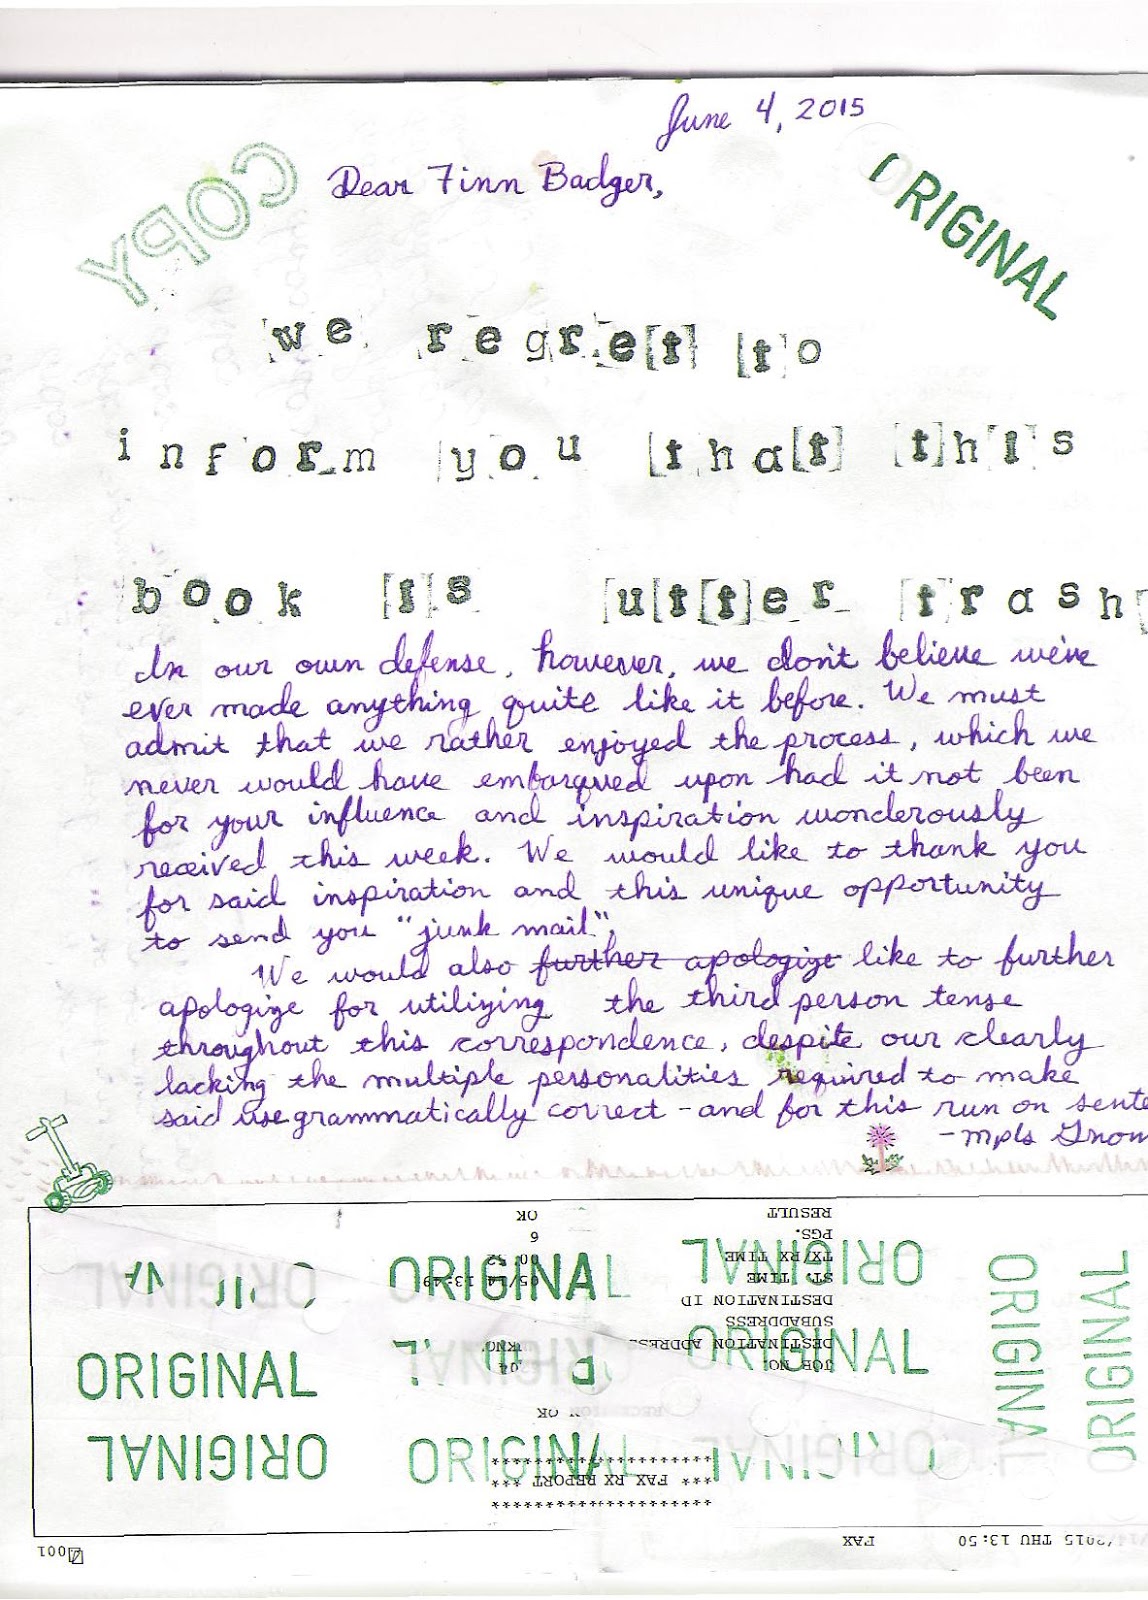 June 4, 2015
Dear Finn Badger,
COPY
ORIGINAL
we regret to
inform you that this
book is utter trash
In our own defense, however, we don't believe we've
ever made anything quite like it before. We must
admit that we rather enjoyed the process, which we
never would have embarqued upon had it not been
for your influence and inspiration wonderously
received this week. We would like to thank you
for said inspiration and this unique opportunity
to send you "junk mail".
We would also further apologize like to further
apologize for utilizing the third person tense
throughout this correspondence, despite our clearly
lacking the multiple personalities required to make
said use grammatically correct - and for this run on sente
- mpls Gnom
RESULT OK
PGS. 6
TX/RX TIME
ST. TIME 05/14 13:49
DESTINATION ID
SUBADDRESS
DESTINATION ADDRESS
JOB NO.
*** FAX RX REPORT ***
*********************
ORIGINAL
ORIGINAL
ORIGINAL
ORIGINAL
ORIGINAL
ORIGINAL
ORIGINAL
ORIGINAL
/2015 THU 13:50 FAX
001